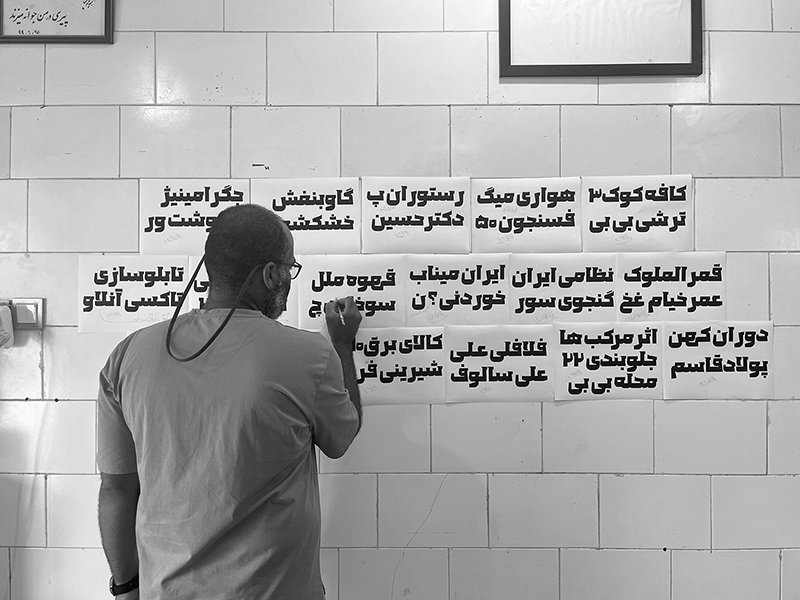 پیری و من جوانه میزند
کافه کوک ۳
ترشی بی بی
هواری میگ
فسنجون ۵۰
رستوران پ
دکتر حسین
گاوبنفش
خشکشـ
جگر امینیژ
وشت ور
قمر الملوک
عمر خیام غخ
نظامی ایران
گنجوی سور
ایران میناب
خوردنی؟ن
قهوه ملل
سوخـ چ
تابلوسازی
تاکسی آنلاو
دوران کهن
پولاد قاسم
اثر مرکب ها
جلوبندی ۲۲
محله بی بی
فلافلی علی
علی سالوف
کالای برق
شیرینی فر